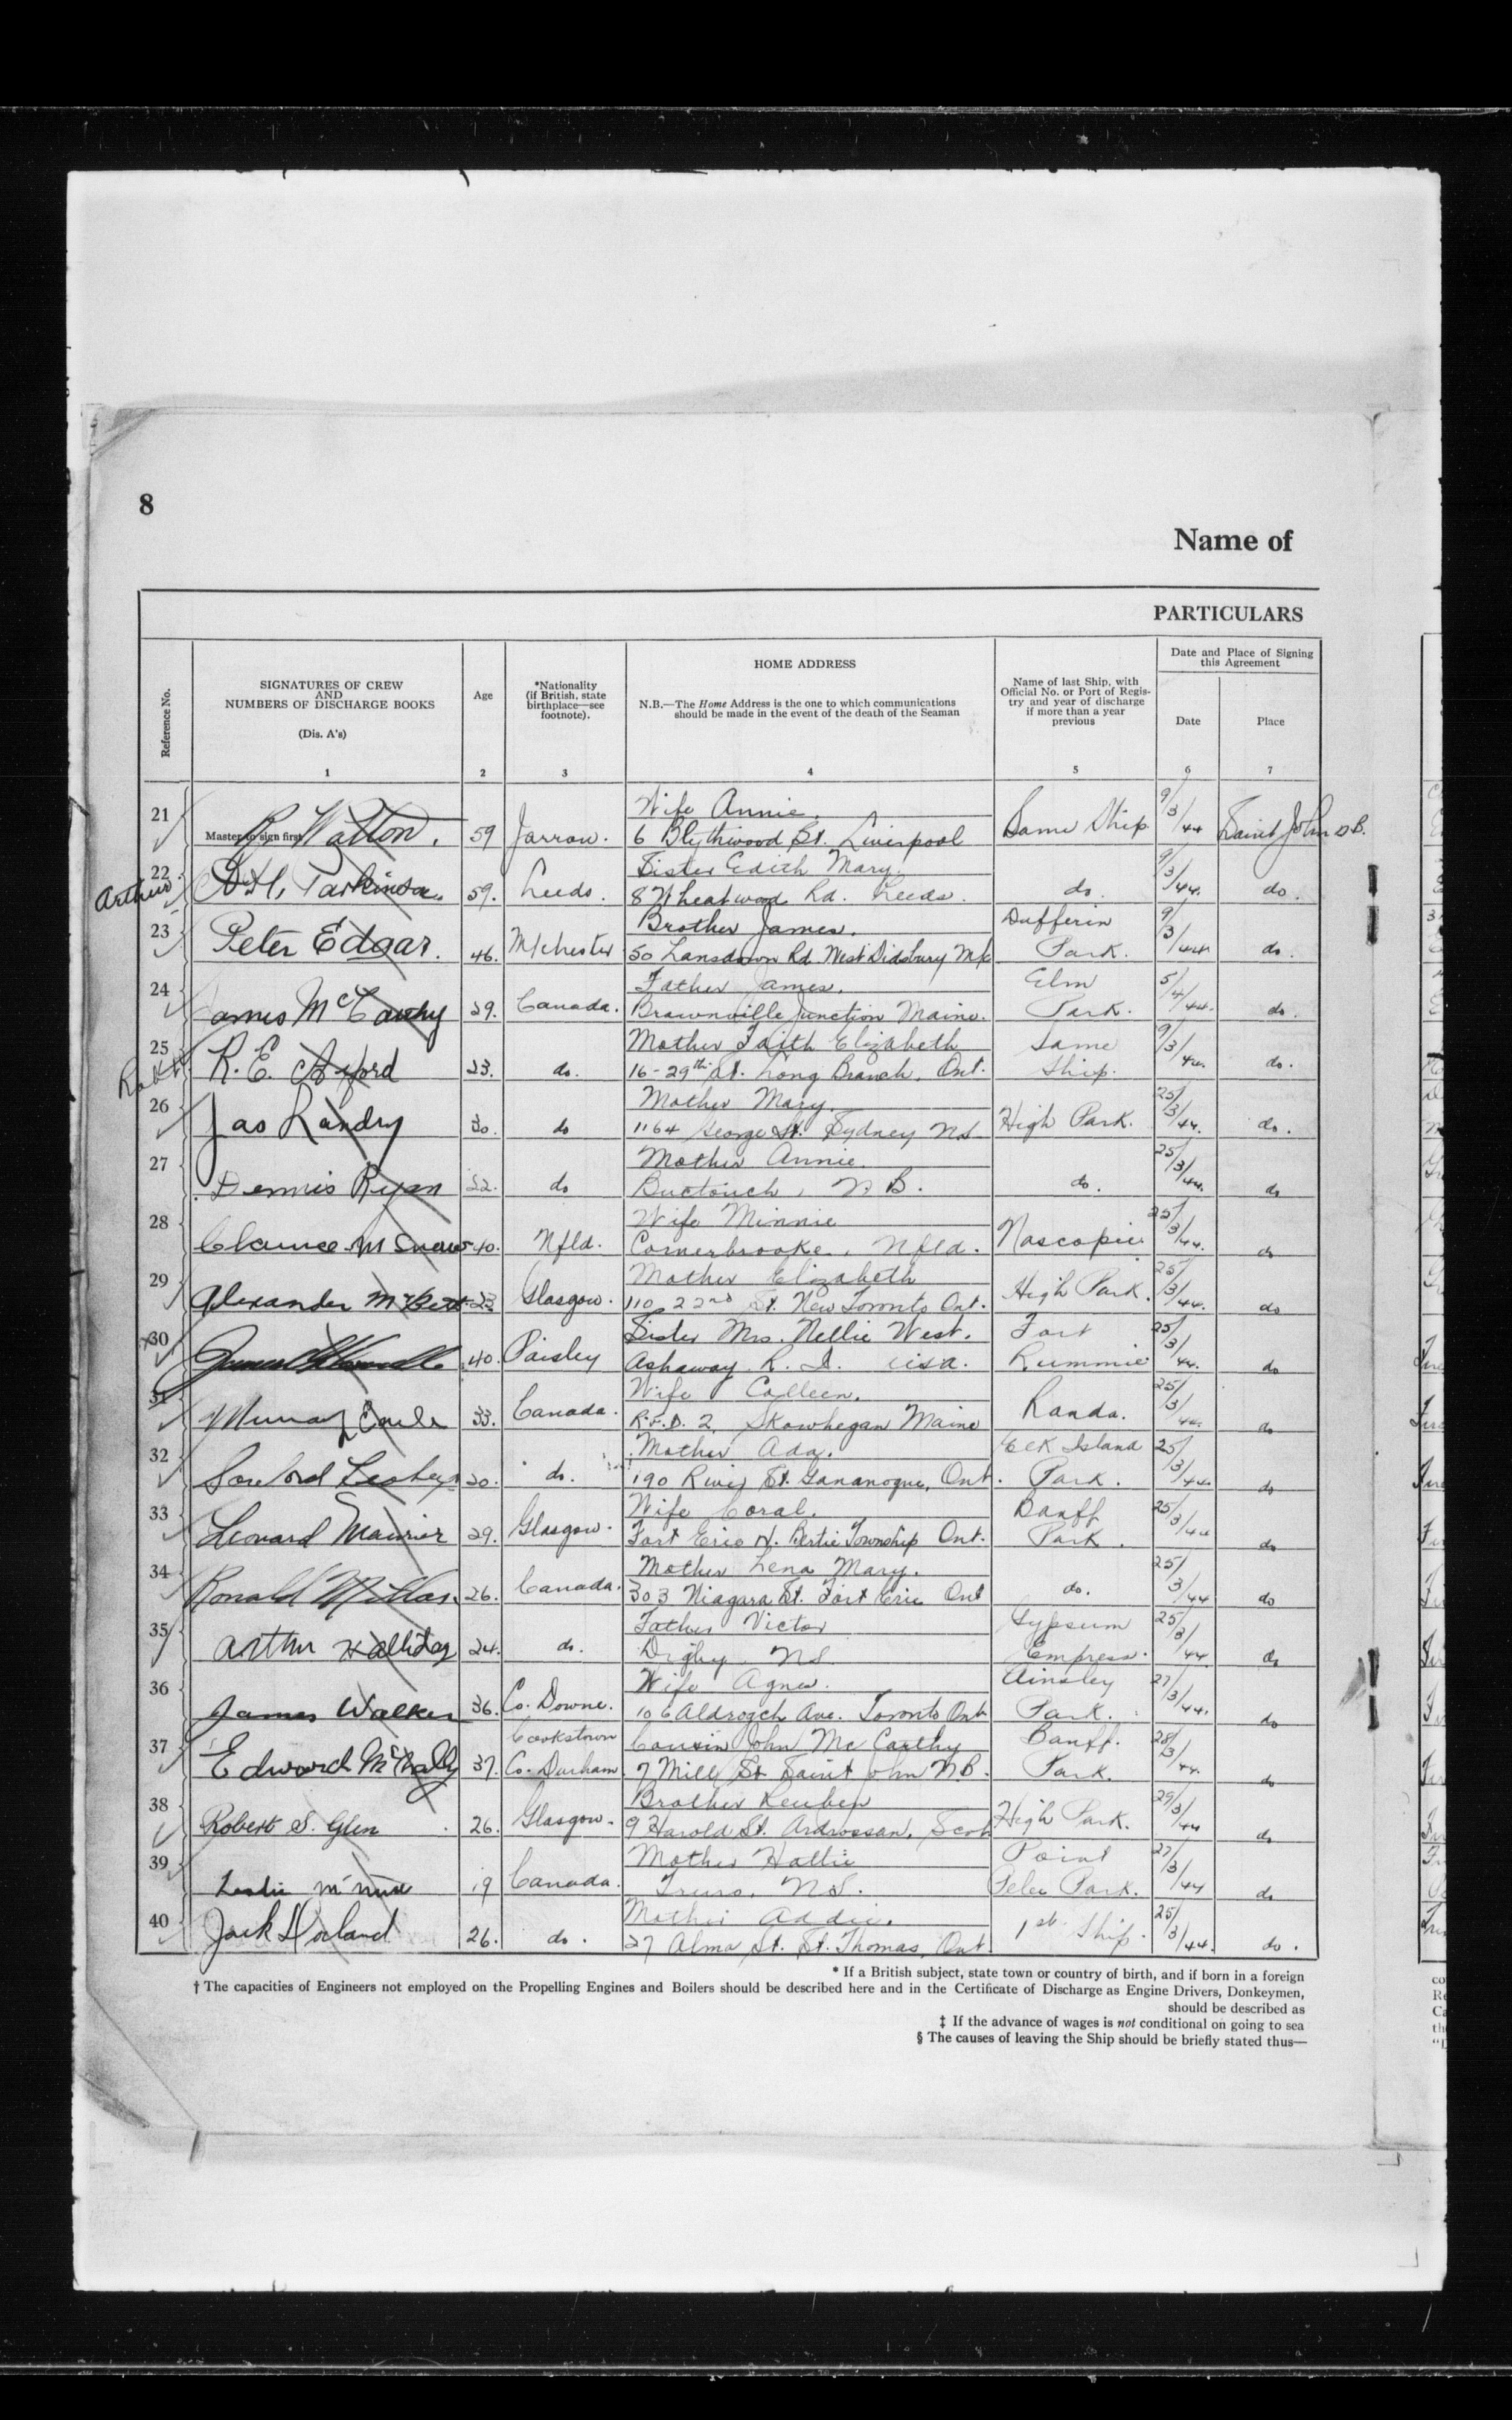 8
Name of
PARTICULARS
Reference No.
SIGNATURES OF CREW
AND
NUMBERS OF DISCHARGE BOOKS
(Dis. A's)
1
Age
2
*Nationality
(if British, state
birthplace—see
footnote).
3
HOME ADDRESS
N.B.—The Home Address is the one to which communications
should be made in the event of the death of the Seaman
4
Name of last Ship, with
Official No. or Port of Regis-
try and year of discharge
if more than a year
previous
5
Date and Place of Signing
this Agreement
Date
6
Place
7
21
Master to sign first
R. Watton. 59 Jarrow.
Wife Annie.
6 Blythwood St. Liverpool
Same Ship 9/3/44 Saint John NB.
22
Arthur
Parkinson. 59. Leeds.
Sister Edith Mary
8 Wheatwood Rd. Leeds.
do. 9/3/44. do.
23
Peter Edgar. 46. M/chester
Brother James.
50 Lansdown Rd. West Didsbury M/c
Dufferin
Park. 9/3/44. do.
24
James McCarthy 29. Canada.
Father James.
Brownville Junction Maine.
Elm
Park. 5/4/44. do.
25
R. E. 23. do.
Mother Faith Elizabeth
16-29th St. Long Branch, Ont.
Same
Ship. 9/3/44. do.
26
Jas Landry 30. do
Mother Mary.
1164 George St. Sydney NS
High Park. 25/3/44. do.
27
Dennis Ryan 22. do
Mother Annie.
Buctouch, N.B.
do. 25/3/44. do
28
Clarence M Snow 40. Nfld.
Wife Minnie
Cornerbrooke, Nfld.
Nascopie 25/3/44. do
29
Alexander 23 Glasgow.
Mother Elizabeth
110 22nd St. New Toronto Ont.
High Park. 25/3/44. do
30
James 40. Paisley
Sister Mrs. Nellie West.
Ashaway R. I. USA.
Fort
Rummie 25/3/44. do
31
Murray Earle 33. Canada.
Wife Colleen.
R.F.D. 2. Skowhegan Maine
Randa. 25/3/44. do
32
20. do.
Mother Ada.
190 River St. Gananoque, Ont.
Elk Island
Park. 25/3/44. do
33
Leonard 29. Glasgow.
Wife Coral.
Fort Erie N. Bertie Township Ont.
Banff
Park. 25/3/44 do
34
Ronald 26. Canada.
Mother Lena Mary.
303 Niagara St. Fort Erie Ont
do. 25/3/44 do
35
Arthur Halliday 24. do.
Father Victor
Digby NS
Gypsum
Empress. 25/3/44 do
36
James Walker 36. Co. Downe.
Wife Agnes.
106 Ave. Toronto Ont
Ainsley
Park. 27/3/44. do
37
Edward McNally 37. Cookstown
Co. Durham
Cousin John McCarthy
7 Mill St. Saint John N.B.
Banff.
Park. 28/3/44. do
38
Robert S. Glen 26. Glasgow.
Brother Reuben
9 Harold St. Ardrossan, Scot
High Park. 29/3/44 do
39
Leslie 19 Canada.
Mother Hattie
Truro, NS.
Point
Pelee Park. 27/3/44 do
40
Jack 26. do.
Mother Addie.
27 Alma St. St. Thomas, Ont
1st Ship. 25/3/44. do.
* If a British subject, state town or country of birth, and if born in a foreign
† The capacities of Engineers not employed on the Propelling Engines and Boilers should be described here and in the Certificate of Discharge as Engine Drivers, Donkeymen,
should be described as
‡ If the advance of wages is not conditional on going to sea
§ The causes of leaving the Ship should be briefly stated thus—